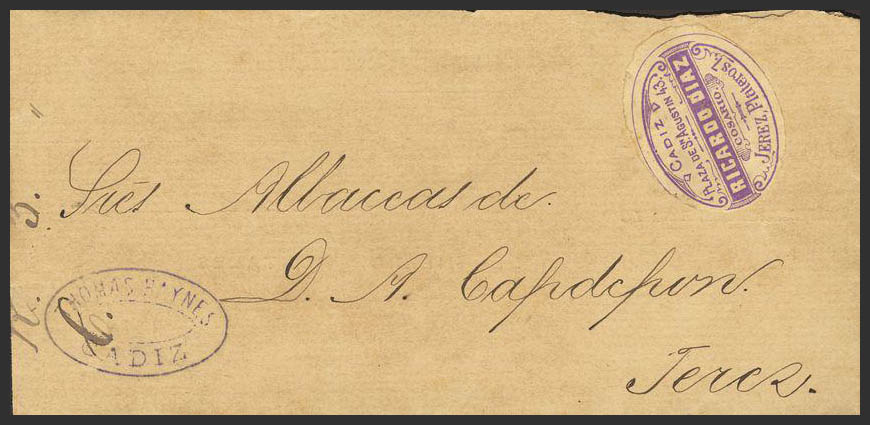 CADIZ
PLAZA DE Sn AGUSTIN 43.
RICARDO DIAZ
COSARIO.
JEREZ, Plateros 7.
Sres Albaceas de.
D. A. Capdepon.
Jerez.
THOMAS HAYNES
CADIZ